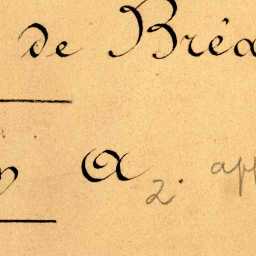 de Bréa
A 2. app